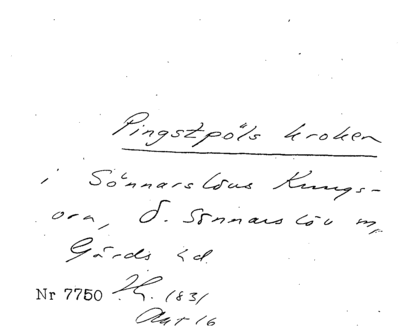 Pingstpöls kroken
i Sönnarslövs Kungs-
ora, Ö. Sönnarslöv
Gärds hd.
Nr 7750 1831
Akt 16